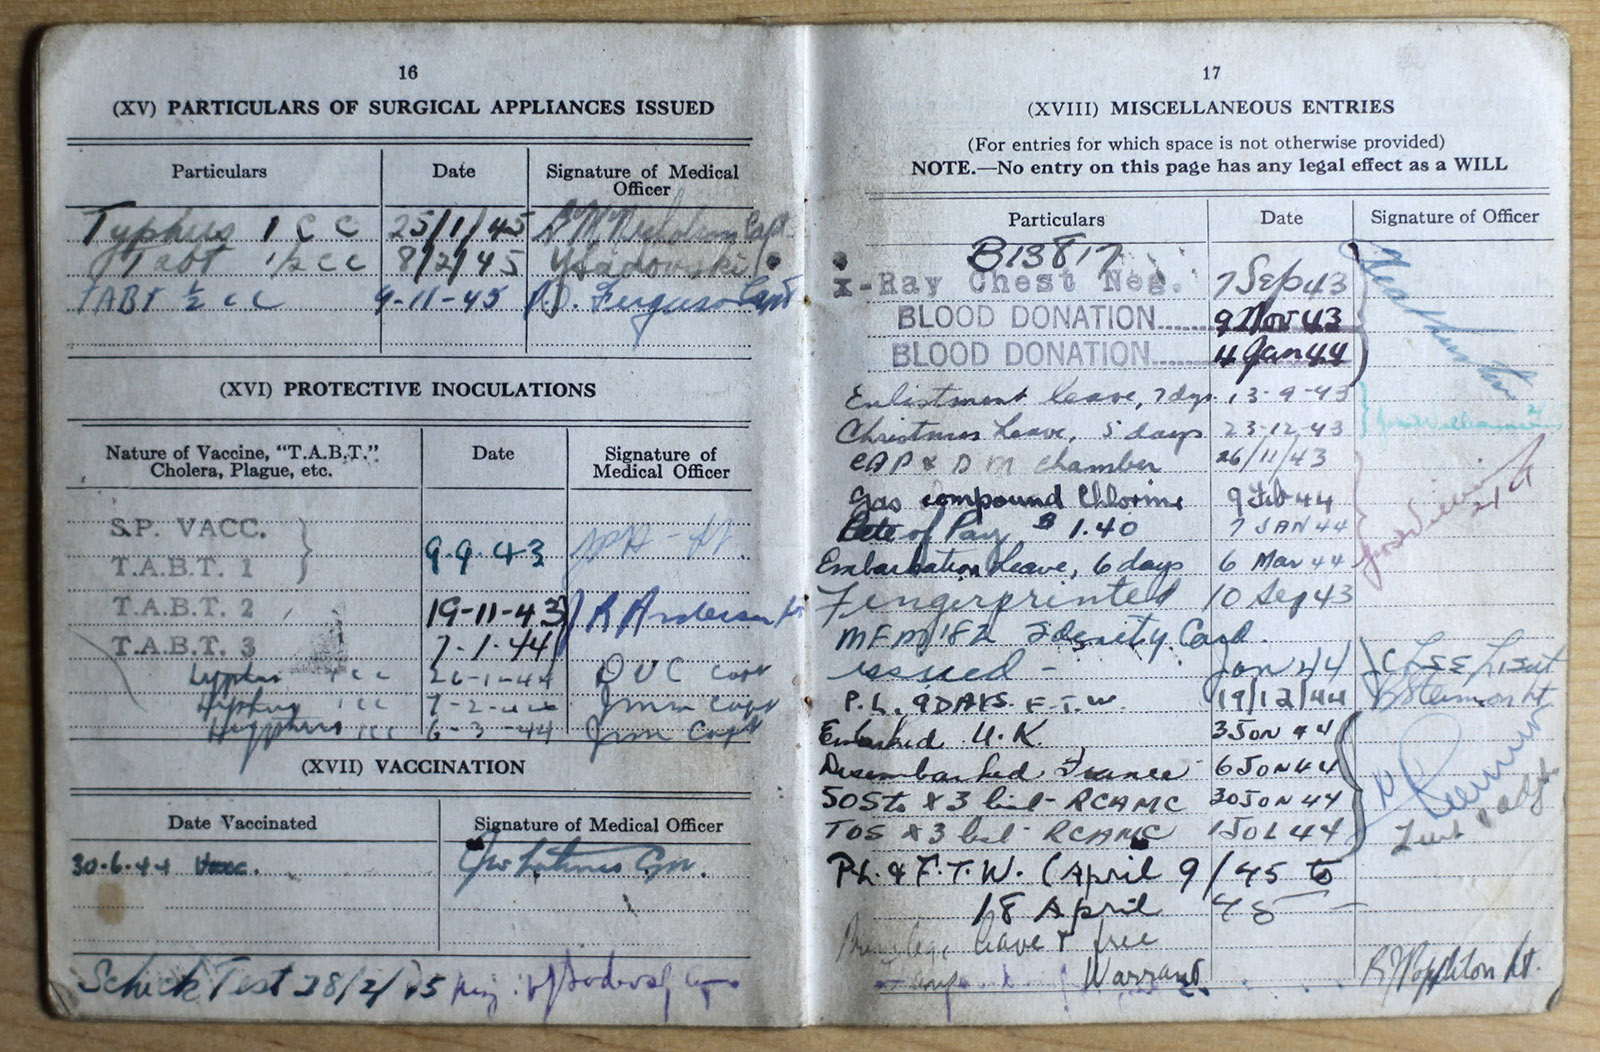 16
(XV) PARTICULARS OF SURGICAL APPLIANCES ISSUED
Particulars Date Signature of Medical Officer
Typhus 1 CC 25/1/45 Capt
Tabt 1/2 cc 8/2/45
TABT ½ cc 9-11-45 Ferguson Capt
(XVI) PROTECTIVE INOCULATIONS
Nature of Vaccine, "T.A.B.T." Cholera, Plague, etc. Date Signature of Medical Officer
S.P. VACC.
T.A.B.T. 1 9.9.43
T.A.B.T. 2 19-11-43 R Anderson
T.A.B.T. 3 7-1-44
Typhus 1cc 26-1-44 Capt
1cc 7-2-44 Jmm Capt
1cc 6-3-44 Jmm Capt
(XVII) VACCINATION
Date Vaccinated Signature of Medical Officer
30.6.44 Vacc.
Schick Test 28/2/45
17
(XVIII) MISCELLANEOUS ENTRIES
(For entries for which space is not otherwise provided)
NOTE.—No entry on this page has any legal effect as a WILL
Particulars Date Signature of Officer
B13817
X-Ray Chest Neg. 7 Sep 43
BLOOD DONATION 9 Nov 43
BLOOD DONATION 4 Jan 44
Enlistment leave, 7 dys 13-9-43
Christmas Leave, 5 days 23-12-43
CAP & D M chamber 26/11/43
Gas compound Chlorine 9 Feb 44
Rate of Pay $ 1.40 7 JAN 44
Embarkation Leave, 6 days 6 Mar 44
Fingerprinted 10 Sep 43
MFM 182 Identity Card
issued - Jan 44
P.L. 9 DAYS F.T.W. 19/12/44
Embarked U.K. 3 JUN 44
Disembarked France 6 JUN 44
SOS to X3 list - RCAMC 30 JUN 44
TOS X3 list - RCAMC 1 JUL 44
Lieut & adjt
P.L. & F.T.W. (April 9/45 to
18 April 45
leave & free
Warrant Lt.